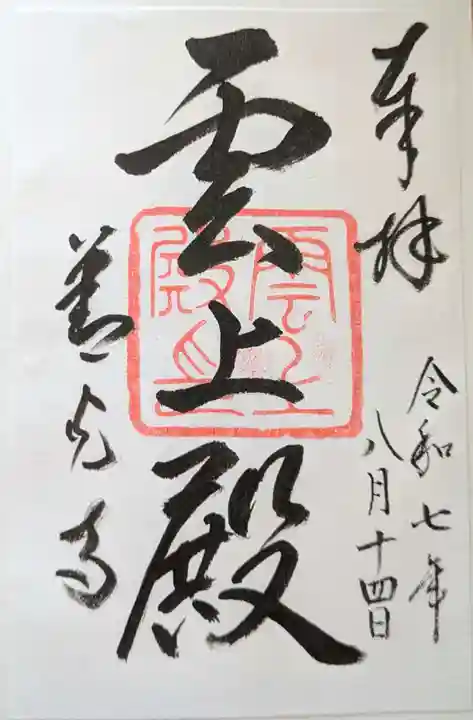 奉拝
令和七年
八月十四日
雲上殿
雲上殿印
善光寺